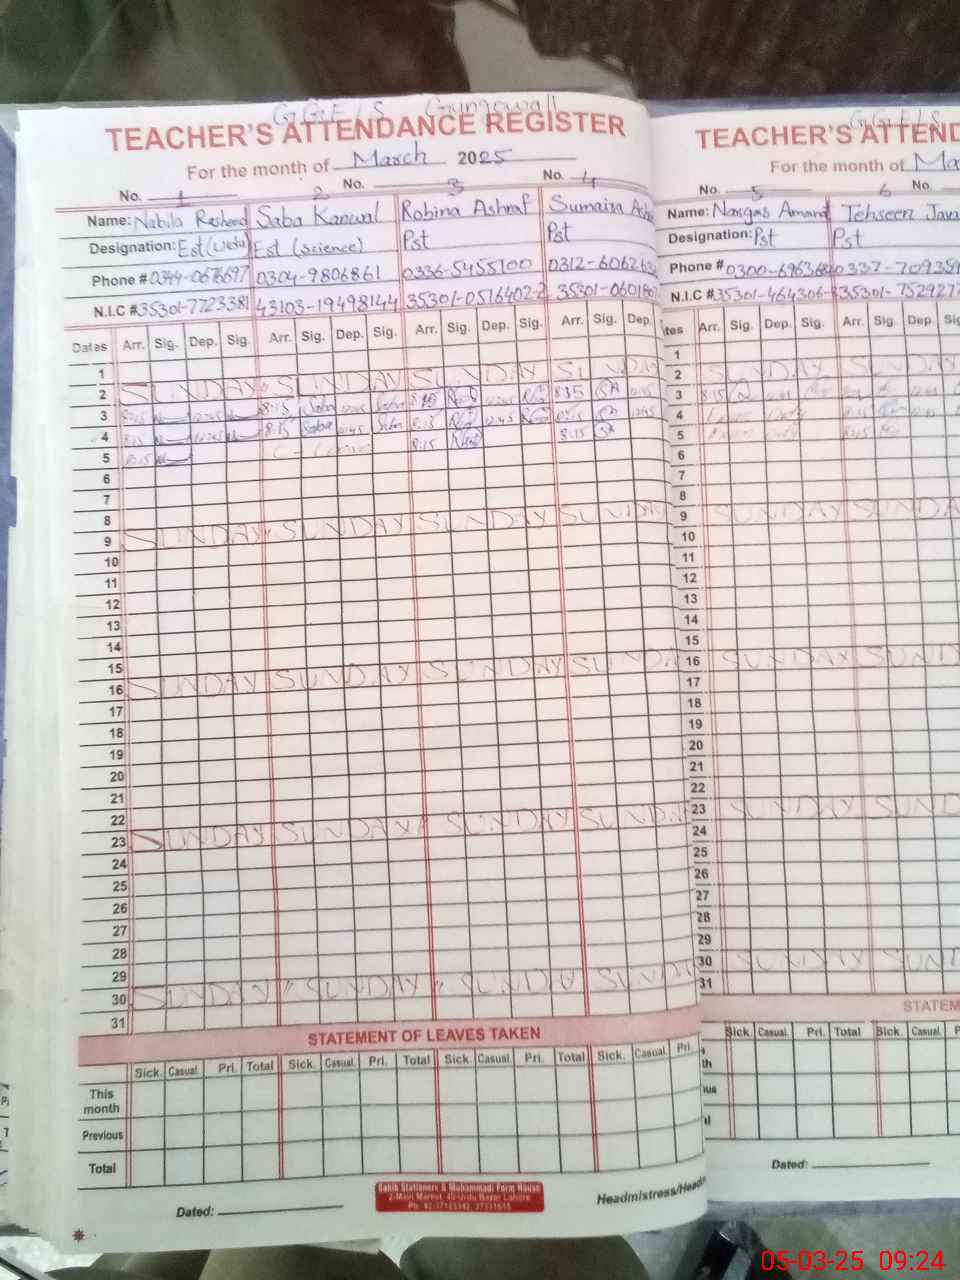 GGE/S Gungowall
TEACHER'S ATTENDANCE REGISTER
For the month of March 2025
No. 1 2 No. 3 No. 4
Name: Nabila Rasheed Saba Kanwal Robina Ashraf Sumaira
Designation: Est(Urdu) Est (science) Pst Pst
Phone # 0344-0676697 0304-9806861 0336-5455100 0312-6062
N.I.C # 35301-7723381 43103-19498144 35301-0516402-2 35301-0601
Dates Arr. Sig. Dep. Sig. Arr. Sig. Dep. Sig. Arr. Sig. Dep. Sig. Arr. Sig. Dep.
1
2 SUNDAY SUNDAY SUNDAY SUNDAY
3 8:15 12:45 8:15 Saba 12:45 Saba 8:15 12:45 8:35 SA 12:45
4 8:15 12:45 8:15 Saba 12:45 Saba 8:15 12:45 8:15 SA 12:45
5 8:15 C-Leave 8:15 8:15 SA
6
7
8
9 SUNDAY SUNDAY SUNDAY SUNDAY
10
11
12
13
14
15
16 SUNDAY SUNDAY SUNDAY SUNDA
17
18
19
20
21
22
23 SUNDAY SUNDAY SUNDAY SUNDA
24
25
26
27
28
29
30 SUNDAY SUNDAY SUNDAY SUND
31
STATEMENT OF LEAVES TAKEN
Sick. Casual. Pri. Total Sick. Casual. Pri. Total Sick. Casual. Pri. Total Sick. Casual. Pri.
This month
Previous
Total
Dated:
Headmistress/Head
Sahib Stationers & Muhammadi Form House
2-Main Market, 40-Urdu Bazar Lahore
GGE/S
TEACHER'S ATTEND
For the month of Ma
No. 5 6 No.
Name: Nargas Amand Tehseen Java
Designation: Pst Pst
Phone # 0300-6963 0337-70935
N.I.C # 35301-464306- 35301-752927
tes Arr. Sig. Dep. Sig. Arr. Sig. Dep.
1
2 SUNDAY SUNDAY
3 8:15
4 Duty
5 Duty 8:15
6
7
8
9 SUNDAY SUNDA
10
11
12
13
14
15
16 SUNDAY SUND
17
18
19
20
21
22
23 SUNDAY SUND
24
25
26
27
28
29
30 SUNDAY SUND
31
STATEM
Sick. Casual. Pri. Total Sick. Casual. P
Dated:
05-03-25 09:24